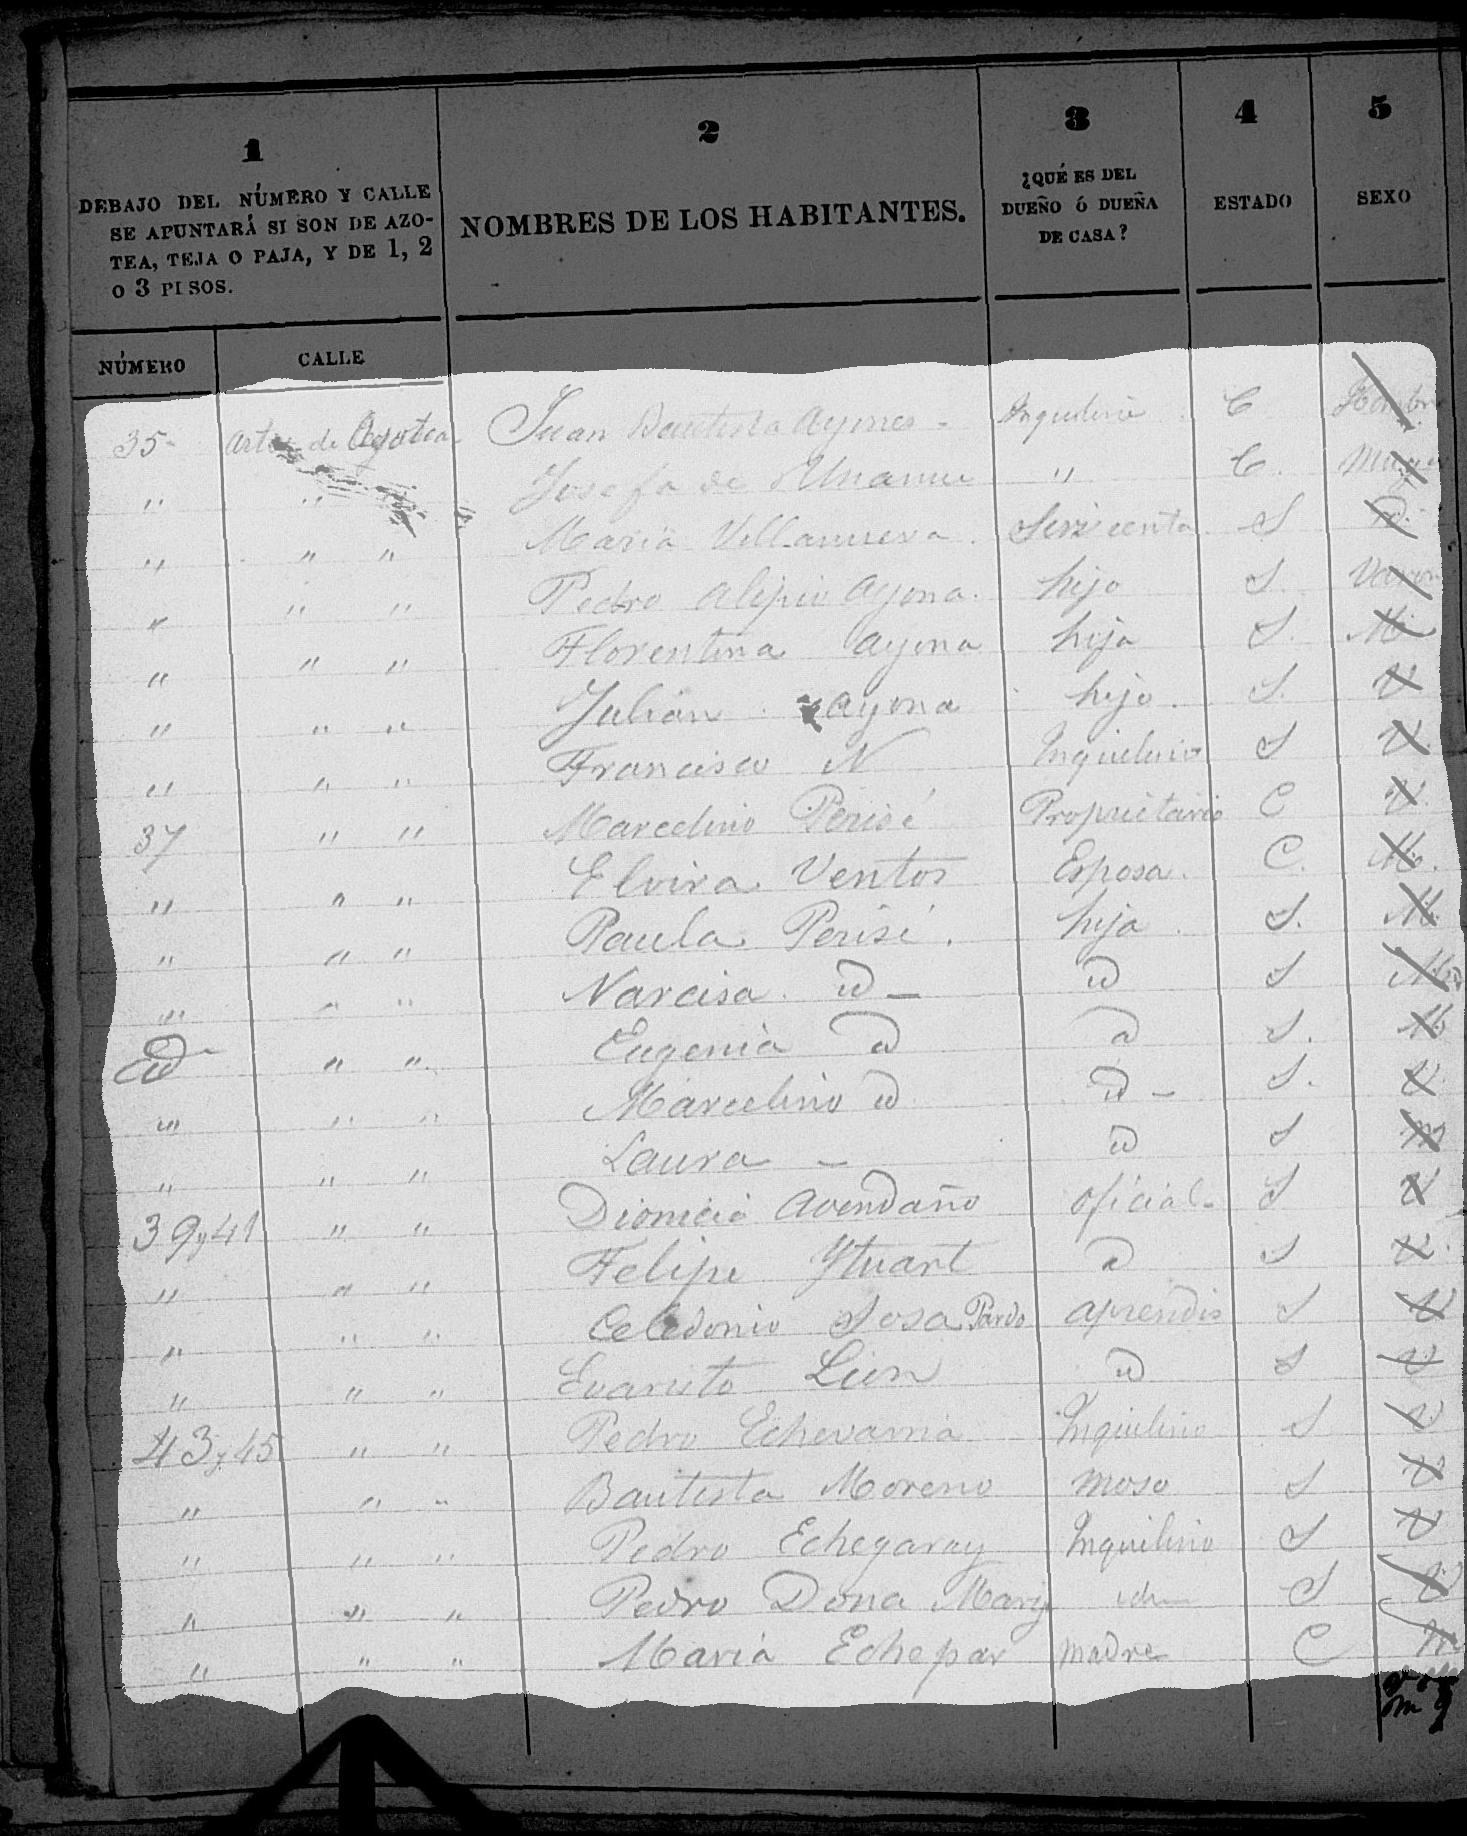 1
DEBAJO DEL NÚMERO Y CALLE
SE APUNTARÁ SI SON DE AZO-
TEA, TEJA O PAJA, Y DE 1, 2
O 3 PISOS.
2
NOMBRES DE LOS HABITANTES.
3
¿QUÉ ES DEL
DUEÑO Ó DUEÑA
DE CASA?
4
ESTADO
5
SEXO
NÚMERO CALLE
35 Artes de Azotea Juan Bautista Ayones Inquilino C Hombre
" " Josefa de Unanue " C. Muger
" " " Maria Villanueva. Sirvienta S id.
" " " Pedro Alipio Ayona. hijo S. Varon
" " " Florentina Ayona hija S. M.
" " " Julian Ayona hijo. S. V.
" " " Francisco N Inquilino S V.
37 " " Marcelino Perisé Proprietario C V.
" " " Elvira Ventos Esposa. C. M.
" " " Paula Perisé. hija S. M.
" " " Narcisa. id id S M
id " " Eugenia id id S. M
" " " Marcelino id id S. V.
" " " Laura — id S M
39y41 " " Dionicio Avendaño oficial S V
" " " Felipe Ytuart id S V.
" " " Celedonio Sosa Pardo aprendis S V
" " " Evaristo Lion id S V
43y45 " " Pedro Echevarria Inquilino S V
" " " Bautista Moreno moso S V
" " " Pedro Echegaray Inquilino S V
" " " Pedro Dona Mary id S V
" " " Maria Echepar madre C M